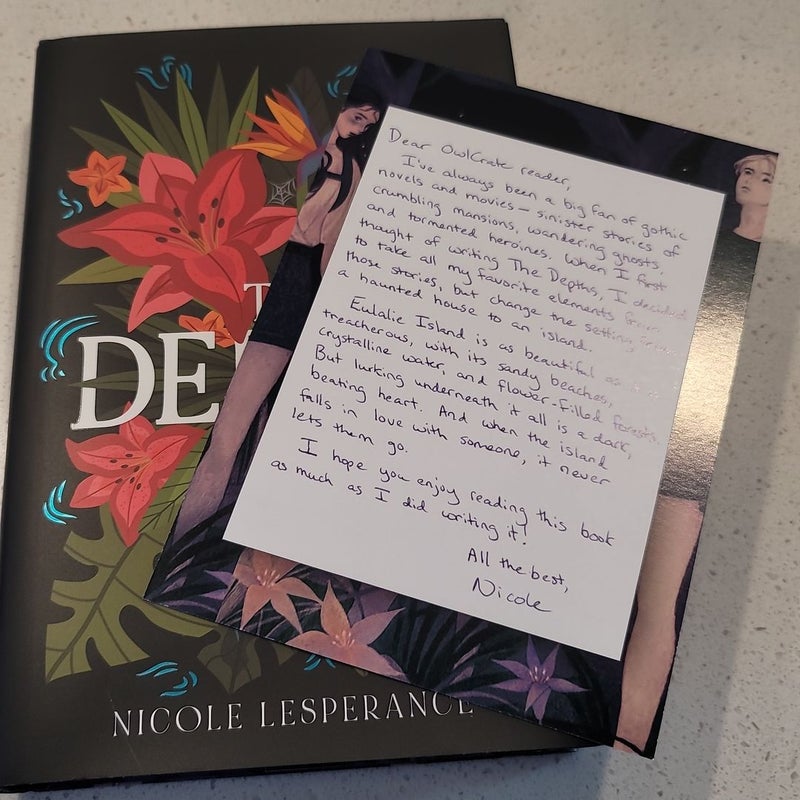 T
DE
NICOLE LESPERANCE
Dear OwlCrate reader,
I've always been a big fan of gothic
novels and movies — sinister stories of
crumbling mansions, wandering ghosts,
and tormented heroines. When I first
thought of writing The Depths, I decided
to take all my favorite elements from
those stories, but change the setting
a haunted house to an island.
Eulalie Island is as beautiful as
treacherous, with its sandy beaches,
crystalline water, and flower-filled forests.
But lurking underneath it all is a dark,
beating heart. And when the island
falls in love with someone, it never
lets them go.
I hope you enjoy reading this book
as much as I did writing it!
All the best,
Nicole